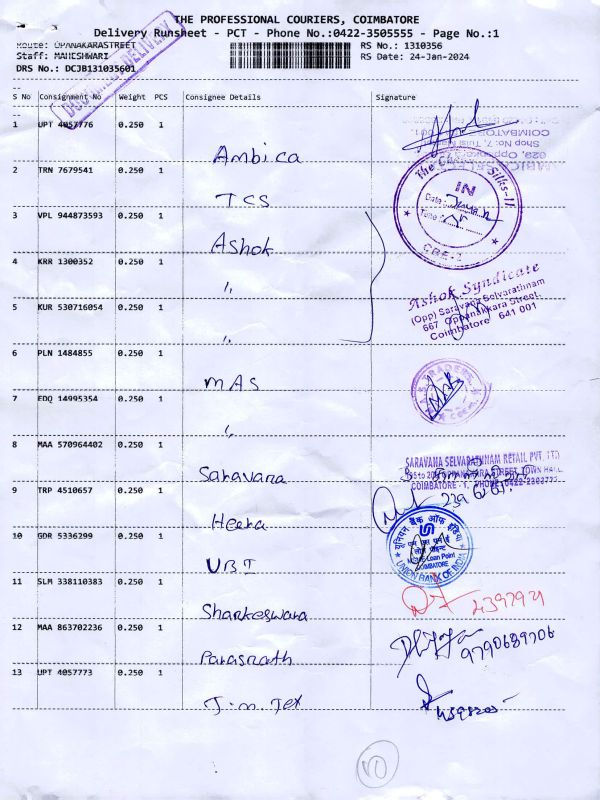 THE PROFESSIONAL COURIERS, COIMBATORE
Delivery Runsheet - PCT - Phone No.:0422-3505555 - Page No.:1
Route: OPANAKARASTREET
RS No.: 1310356
Staff: MAHESHWARI
RS Date: 24-Jan-2024
DRS No.: DCJB131035601
S No Consignment No Weight PCS Consignee Details Signature
1 UPT 4057776 0.250 1
Ambica
2 TRN 7679541 0.250 1
TCS
The Silks-II
IN
Date :
Time :
CBE-1
3 VPL 944873593 0.250 1
Ashok
4 KRR 1300352 0.250 1
"
Ashok Syndicate
(Opp) Saravana Selvarathnam
667 Oppanakkara Street,
Coimbatore 641 001
5 KUR 530716054 0.250 1
"
6 PLN 1484855 0.250 1
MAS
7 EDQ 14995354 0.250 1
"
8 MAA 570964402 0.250 1
Saravana
SARAVANA SELVARATHNAM RETAIL PVT. LTD
STREET, TOWN HALL
COIMBATORE - 1, PHONE:0422-2302775
9 TRP 4510657 0.250 1
Heera
10 GDR 5336299 0.250 1
UBI
यूनियन बैंक ऑफ इंडिया
Loan Point
COIMBATORE
UNION BANK OF INDIA
11 SLM 338110383 0.250 1
Shankeswara
12 MAA 863702236 0.250 1
Parasnath
9790689706
13 UPT 4057773 0.250 1
Jim Tex
10